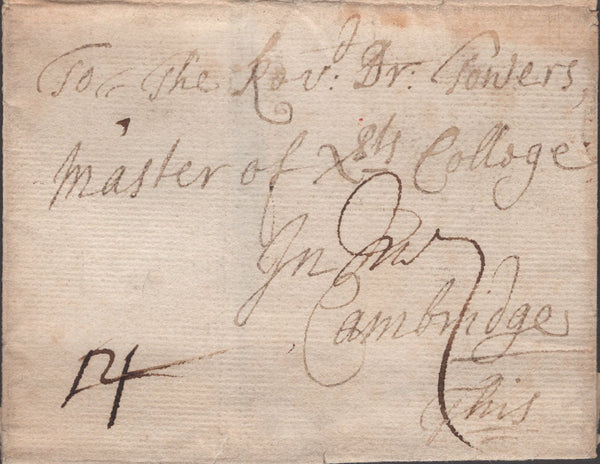 To The Revd: Dr: Towers,
Master of Xsts Colloge
In
Cambridge
This